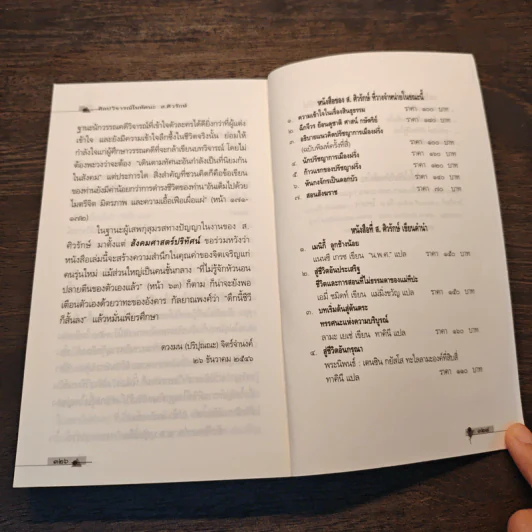 ศิลปวิจารณ์ในทัศนะ ส.ศิวรักษ์
ฐานะนักวรรณคดีวิจารณ์ที่เข้าใจตัวละครได้ดียิ่งกว่าที่ผู้แต่ง
เข้าใจ และยังมีความเข้าใจลึกซึ้งในชีวิตจริงนั้น ย่อมให้
กำลังใจแก่ผู้ศึกษาวรรณคดีที่จะกล้าเขียนบทวิจารณ์ โดยไม่
ต้องพะวงว่าจะต้อง "เดินตามทัศนะอันกำลังเป็นที่นิยมกัน
ในสังคม" แต่ประการใด สิ่งสำคัญที่ชวนคิดก็คือข้อเขียน
ของท่านยังมีค่าน้อยกว่าการดำรงชีวิตของท่าน"อันเต็มไปด้วย
ไมตรีจิต มิตรภาพ และความเอื้อเฟื้อเผื่อแผ่" (หน้า ๑๗๑-
๑๗๒)
ในฐานะผู้เสพกุสุมรสทางปัญญาในงานของ ส.
ศิวรักษ์ มาตั้งแต่ สังคมศาสตร์ปริทัศน์ ขอร่วมหวังว่า
หนังสือเล่มนี้จะสร้างความสำนึกในคุณค่าของจิตเจริญแก่
คนรุ่นใหม่ แม้ส่วนใหญ่เป็นคนชั้นกลาง "ที่ไม่รู้จักหัวนอน
ปลายตีนของตัวเองแล้ว" (หน้า ๖๓) ก็ตาม ก็น่าจะยังพอ
เตือนตัวเองด้วยวาทะของอังคาร กัลยาณพงศ์ว่า "ดึกนี้ชีวี
ก็สิ้นลง" แล้วหมั่นเพียรศึกษา
ดวงมน (ปริปุณณะ) จิตร์จำนงค์
๒๖ ธันวาคม ๒๕๔๖
๓๒๖
หนังสือของ ส. ศิวรักษ์ ที่วางจำหน่ายในขณะนี้
๑. ความเข้าใจในเรื่องสินธุธรรม ราคา ๑๐๐ บาท
๒. ฉีกจีวร ย้อนดูชาติ ศาสน์ กษัตริย์
๓. อธิบายแนวคิดปรัชญาการเมืองฝรั่ง
(ฉบับพิมพ์ครั้งที่สี่)
๔. นักปรัชญาการเมืองฝรั่ง
๕. ก้าวแรกของปรัชญาฝรั่ง
๖. หันกงจักรเป็นดอกบัว
๗. สอนสังฆราช ราคา ๗๐ บาท
หนังสือที่ ส. ศิวรักษ์ เขียนคำนำ
๑. เมนิกี้ ลูกช้างน้อย
แนนซี เกรซ เขียน "น.พ.ต." แปล ราคา ๑๕๐ บาท
๒. สู่ชีวิตอันประเสริฐ
ชีวิตและการสอนที่ไม่ธรรมดาของแม่ทีปะ
เอมี่ ชมิดท์ เขียน แม่ผึ้งขวัญ แปล ราคา ๑๕๐ บาท
๓. บทเริ่มต้นสู่ตันตระ
ทรรศนะแห่งความบริบูรณ์
ลามะ เยเช่ เขียน ทาคินี แปล ราคา ๑๖๐ บาท
๔. สู่ชีวิตอันกรุณา
พระนิพนธ์ : เตนซิน กยัตโส ทะไลลามะองค์ที่สิบสี่
ทาคินี แปล ราคา ๑๑๐ บาท